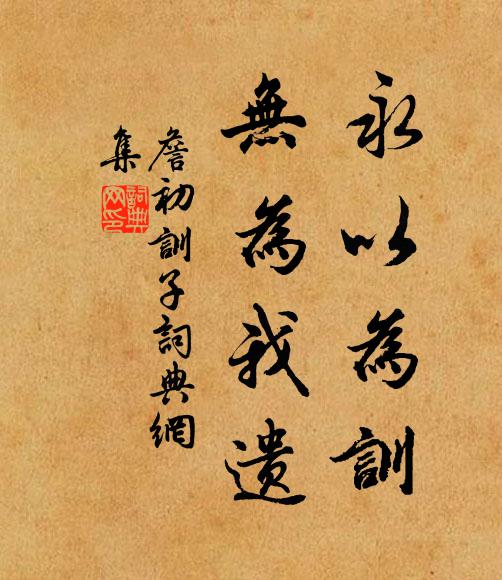 永以為訓
無為我遺
詹初訓子詞典網
集
詞典網印